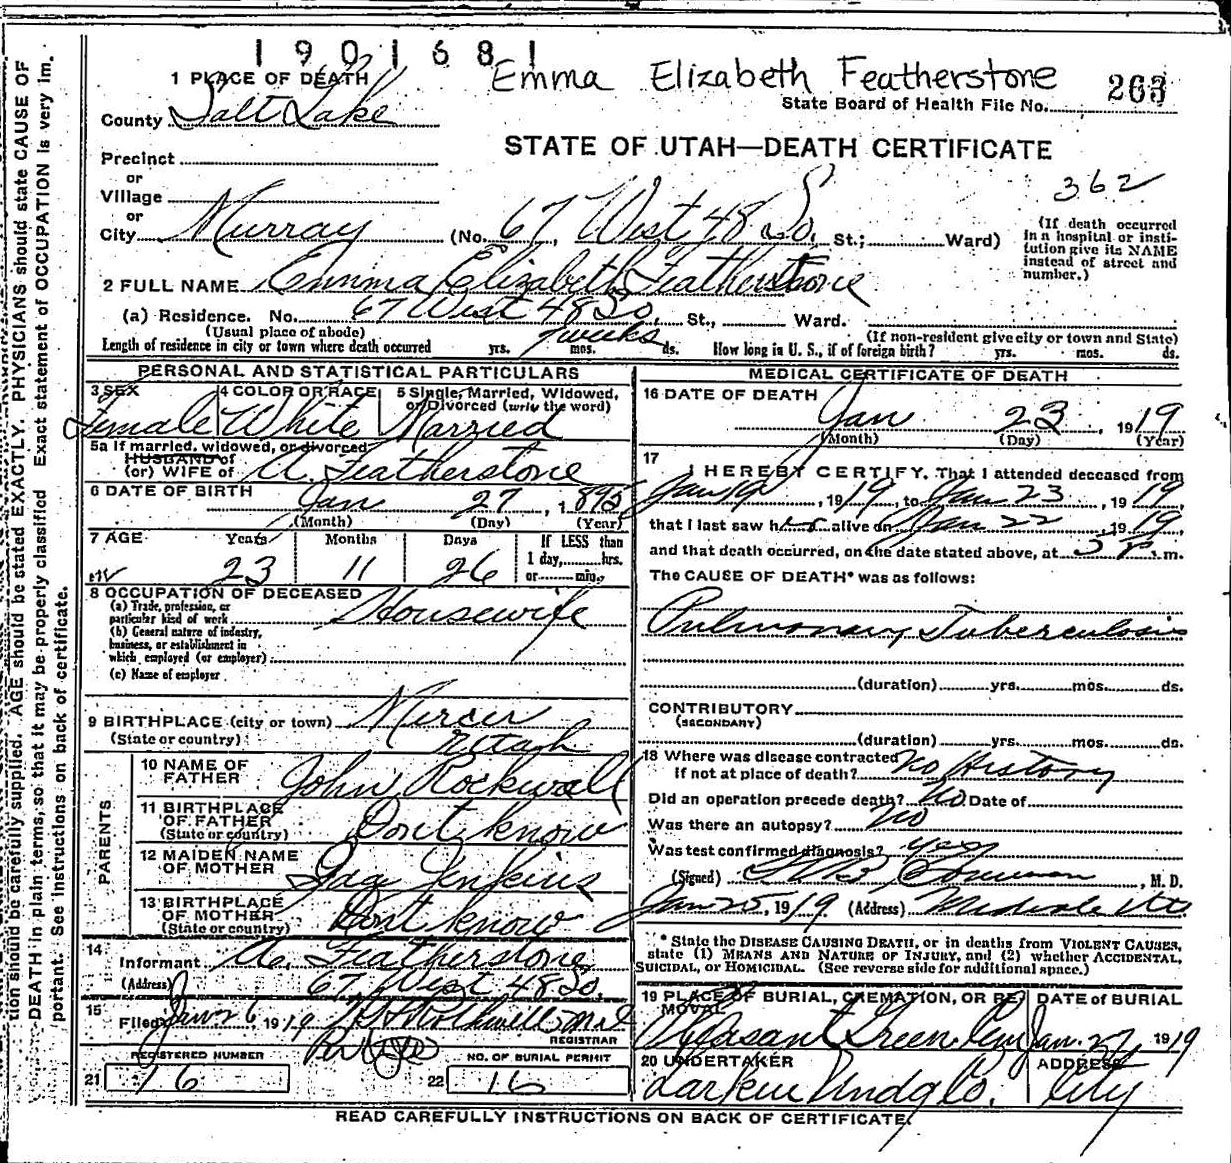 1901681
Emma Elizabeth Featherstone
1 PLACE OF DEATH
State Board of Health File No. 263
County Salt Lake
STATE OF UTAH—DEATH CERTIFICATE
Precinct
or
362
Village
or
City Murray (No. 67, West 48 So. St.; Ward)
(If death occurred in a hospital or institution give its NAME instead of street and number.)
2 FULL NAME Emma Elizabeth Featherstone
(a) Residence. No. 67 West 48 So. St., Ward.
(Usual place of abode) (If non-resident give city or town and State)
Length of residence in city or town where death occurred yrs. mos. weeks ds. How long in U. S., if of foreign birth? yrs. mos. ds.
PERSONAL AND STATISTICAL PARTICULARS
3 SEX Female
4 COLOR OR RACE White
5 Single, Married, Widowed, or Divorced (write the word) Married
5a If married, widowed, or divorced
HUSBAND of
(or) WIFE of A. Featherstone
6 DATE OF BIRTH Jan 27, 1895
(Month) (Day) (Year)
7 AGE Years Months Days If LESS than
1 day, hrs.
23 11 26 or min.
8 OCCUPATION OF DECEASED
(a) Trade, profession, or
particular kind of work Housewife
(b) General nature of industry,
business, or establishment in
which employed (or employer)
(c) Name of employer
9 BIRTHPLACE (city or town) Mercur
(State or country) Utah
PARENTS
10 NAME OF FATHER John Rockwell
11 BIRTHPLACE OF FATHER (State or country) Dont know
12 MAIDEN NAME OF MOTHER Jenkins
13 BIRTHPLACE OF MOTHER (State or country) Dont know
14
Informant A. Featherstone
(Address) 67 West 48 So.
15
Filed Jan 26 1919
REGISTRAR
REGISTERED NUMBER NO. OF BURIAL PERMIT
21 16 22 16
MEDICAL CERTIFICATE OF DEATH
16 DATE OF DEATH
Jan 23, 1919
(Month) (Day) (Year)
17
I HEREBY CERTIFY, That I attended deceased from
Jan 19, 1919, to Jan 23, 1919,
that I last saw her alive on Jan 22, 1919,
and that death occurred, on the date stated above, at 5 P. m.
The CAUSE OF DEATH* was as follows:
Pulmonary Tuberculosis
(duration) yrs. mos. ds.
CONTRIBUTORY
(SECONDARY)
(duration) yrs. mos. ds.
18 Where was disease contracted
If not at place of death? No History
Did an operation precede death? No Date of
Was there an autopsy? No
Was test confirmed diagnosis? yes
(Signed) , M. D.
Jan 25, 1919 (Address) Midvale Ut
* State the DISEASE CAUSING DEATH, or in deaths from VIOLENT CAUSES,
state (1) MEANS AND NATURE OF INJURY, and (2) whether ACCIDENTAL,
SUICIDAL, or HOMICIDAL. (See reverse side for additional space.)
19 PLACE OF BURIAL, CREMATION, OR REMOVAL DATE of BURIAL
Pleasant Green Cem Jan. 27, 1919
20 UNDERTAKER ADDRESS
Larkin Undg Co. City
READ CAREFULLY INSTRUCTIONS ON BACK OF CERTIFICATE.
tion should be carefully supplied. AGE should be stated EXACTLY. PHYSICIANS should state CAUSE OF
DEATH in plain terms, so that it may be properly classified Exact statement of OCCUPATION is very im-
portant. See instructions on back of certificate.